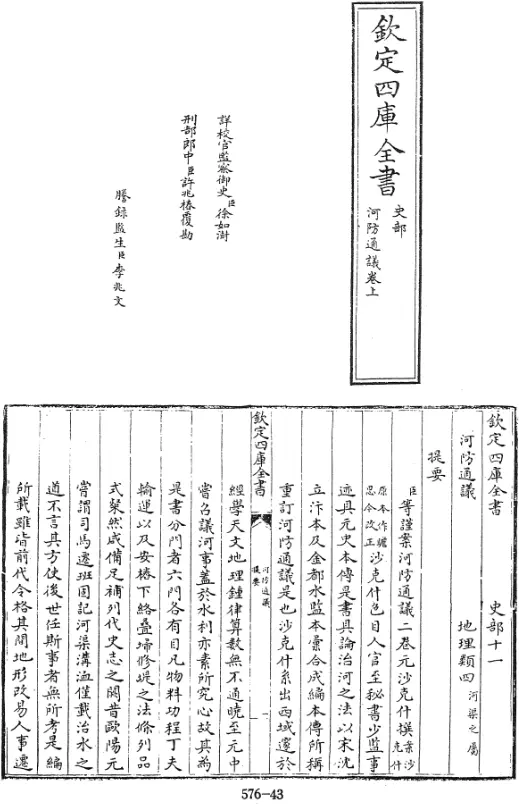 欽定四庫全書
史部
河防通議卷上
詳校官監察御史臣徐如澍
刑部郎中臣許兆椿覆勘
謄錄監生臣李兆文
欽定四庫全書 史部十一
河防通議 地理類四 河渠之屬
提要
臣等謹案河防通議二卷元沙克什撰 案沙克什
原本作贍思今改正 沙克什色目人官至秘書少監事
迹具元史本傳是書具論治河之法以宋沈
立汴本及金都水監本彙合成編本傳所稱
重訂河防通議是也沙克什系出西域邃於
欽定四庫全書 河防通議 提要 一
經學天文地理鍾律算數無不通曉至元中
嘗召議河事蓋於水利亦素所究心故其為
是書分門者六門各有目凡物料功程丁夫
輸運以及安樁下絡疊埽修堤之法條列品
式粲然咸備足補列代史志之闕昔歐陽元
嘗謂司馬遷班固記河渠溝洫僅載治水之
道不言其方使後世任斯事者無所考是編
所載雖皆前代令格其間地形改易人事遷
576-43